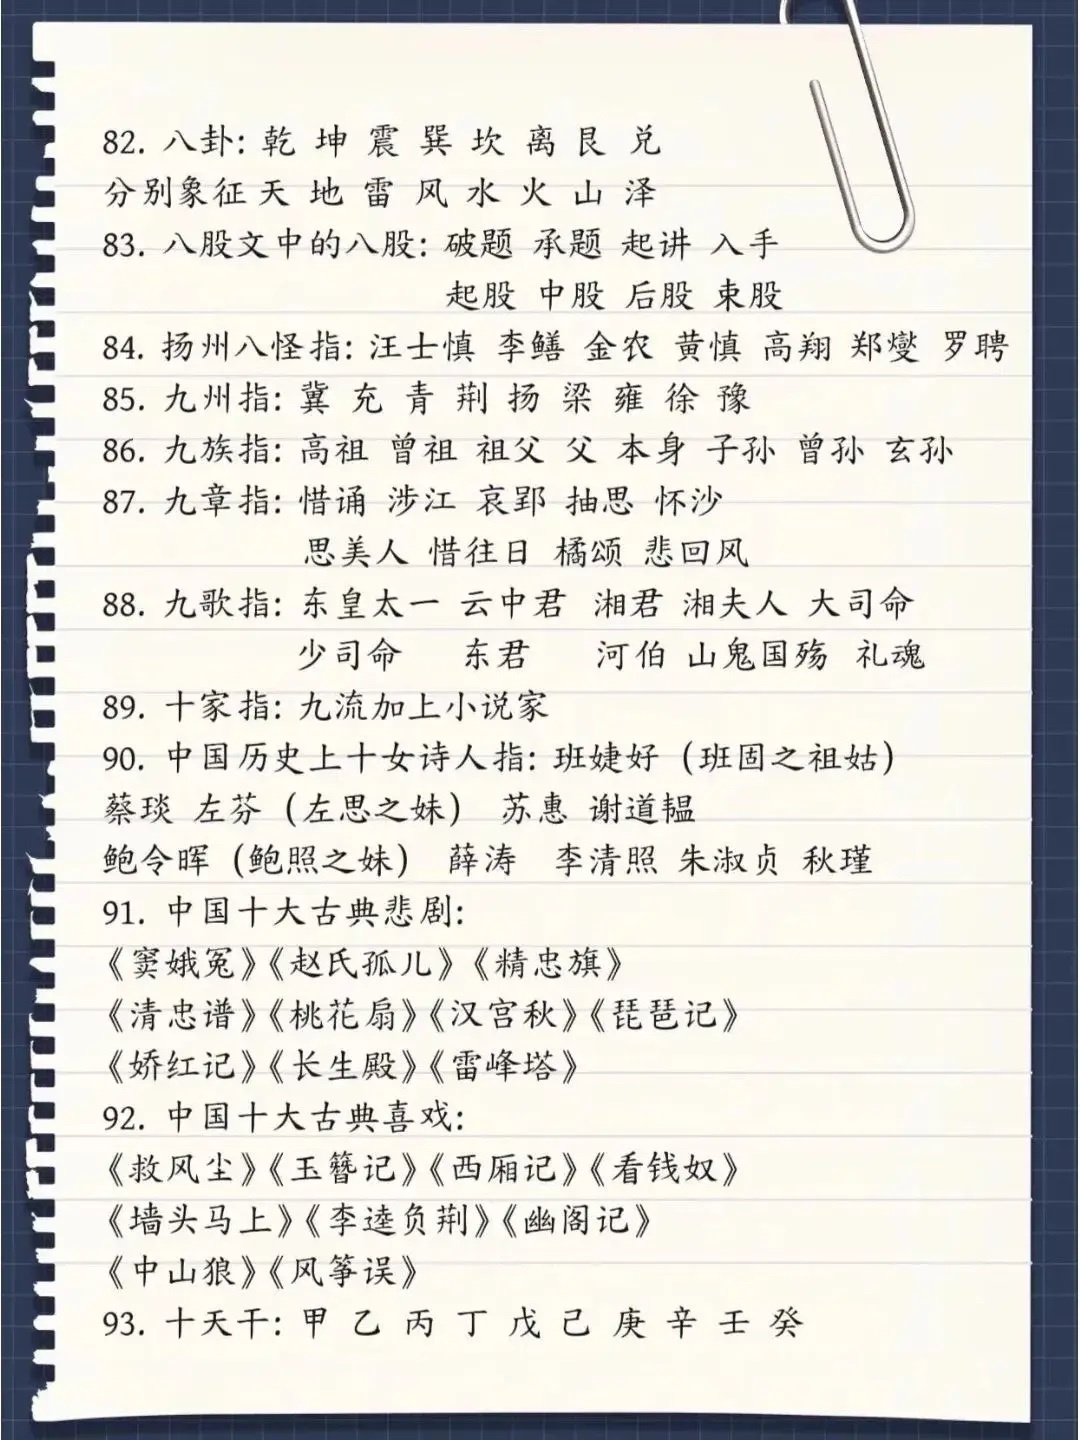 82. 八卦: 乾 坤 震 巽 坎 离 艮 兑
分别象征 天 地 雷 风 水 火 山 泽
83. 八股文中的八股: 破题 承题 起讲 入手
起股 中股 后股 束股
84. 扬州八怪指: 汪士慎 李鳝 金农 黄慎 高翔 郑燮 罗聘
85. 九州指: 冀 充 青 荆 扬 梁 雍 徐 豫
86. 九族指: 高祖 曾祖 祖父 父 本身 子孙 曾孙 玄孙
87. 九章指: 惜诵 涉江 哀郢 抽思 怀沙
思美人 惜往日 橘颂 悲回风
88. 九歌指: 东皇太一 云中君 湘君 湘夫人 大司命
少司命 东君 河伯 山鬼国殇 礼魂
89. 十家指: 九流加上小说家
90. 中国历史上十女诗人指: 班婕好 (班固之祖姑)
蔡琰 左芬 (左思之妹) 苏惠 谢道韫
鲍令晖 (鲍照之妹) 薛涛 李清照 朱淑贞 秋瑾
91. 中国十大古典悲剧:
《窦娥冤》《赵氏孤儿》《精忠旗》
《清忠谱》《桃花扇》《汉宫秋》《琵琶记》
《娇红记》《长生殿》《雷峰塔》
92. 中国十大古典喜戏:
《救风尘》《玉簪记》《西厢记》《看钱奴》
《墙头马上》《李逵负荆》《幽阁记》
《中山狼》《风筝误》
93. 十天干: 甲 乙 丙 丁 戊 己 庚 辛 壬 癸